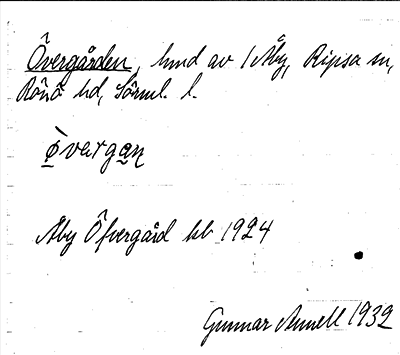 Övergården, hmd av 1 Åby, Ripsa sn,
Rönö hd, Södml. l.
øvargan
Åby Öfvergård kb 1924
Gunnar Annell 1932